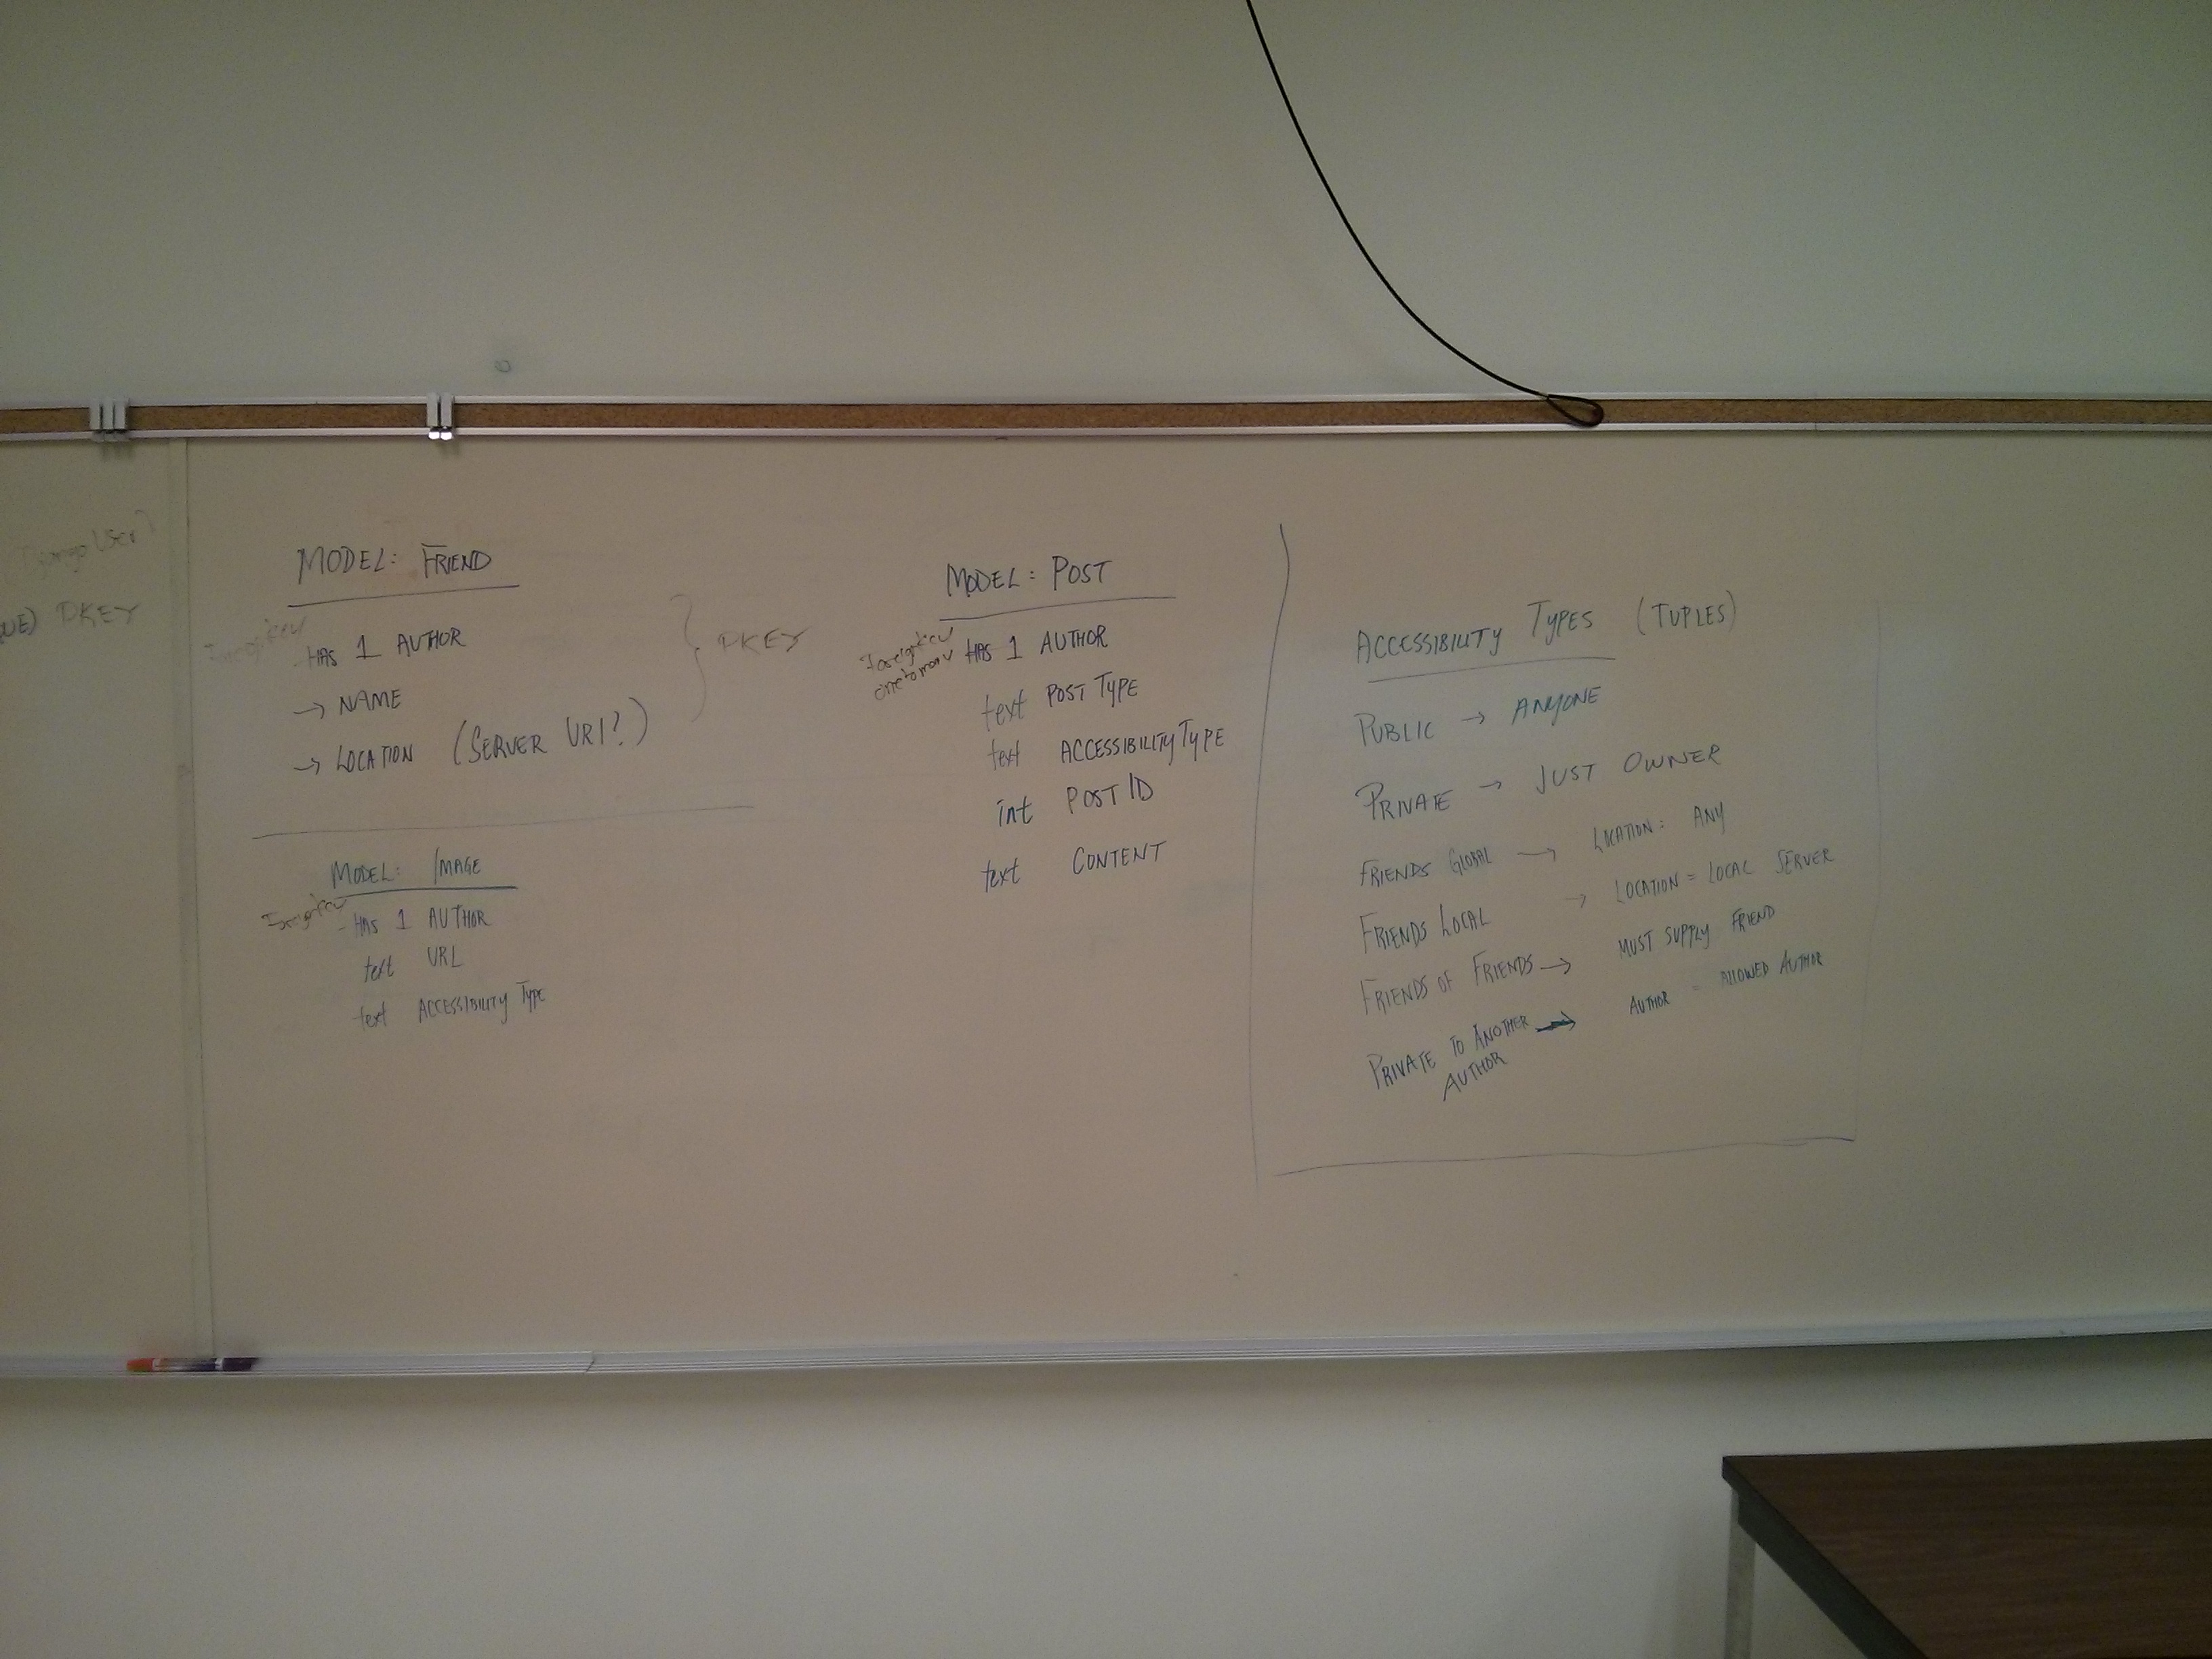 User)
UE) PKEY
MODEL: FRIEND
HAS 1 AUTHOR
→ NAME
→ LOCATION (SERVER URI?)
PKEY
MODEL: IMAGE
Foreignkey
- HAS 1 AUTHOR
text URL
text ACCESSIBILITY TYPE
MODEL: POST
Foreignkey
onetomany
HAS 1 AUTHOR
text POST TYPE
text ACCESSIBILITY TYPE
int POST ID
text CONTENT
ACCESSIBILITY TYPES (TUPLES)
PUBLIC → ANYONE
PRIVATE → JUST OWNER
FRIENDS GLOBAL → LOCATION: ANY
FRIENDS LOCAL → LOCATION = LOCAL SERVER
FRIENDS OF FRIENDS → MUST SUPPLY FRIEND
PRIVATE TO ANOTHER → AUTHOR = ALLOWED AUTHOR
AUTHOR